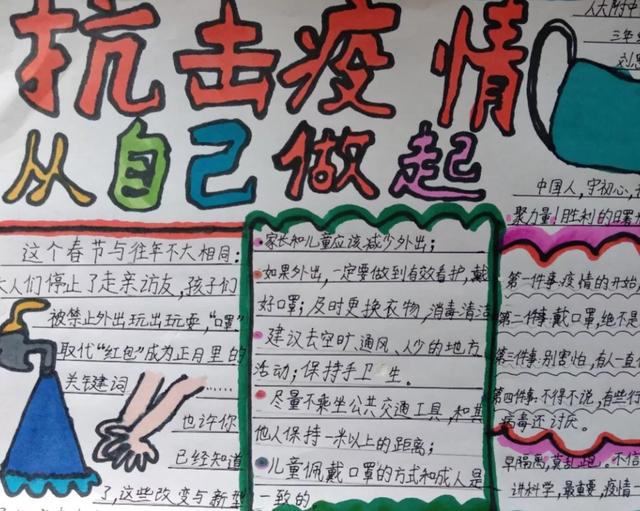 抗击疫情
从自己做起
人大附中
三年
刘
中国人,守初心,
聚力量!胜利的曙
这个春节与往年不大相同:
人们停止了走亲访友,孩子们
被禁止外出玩出玩耍,"口罩"
取代"红包"成为正月里的
关键词……
也许你
已经知道
了,这些改变与新型
家长和儿童应该减少外出;
如果外出,一定要做到有效看护,戴
好口罩;及时更换衣物,消毒清洁
建议去空旷、通风、人少的地方
活动;保持手卫生。
尽量不乘坐公共交通工具,和其
他人保持一米以上的距离;
儿童佩戴口罩的方式和成人是
一致的
第一件事:疫情的开始,
第二件事:戴口罩,绝不是
第三件事:别害怕,有人一直
第四件事:不得不说,有些行
病毒还讨厌。
早隔离,莫乱跑。不信
讲科学,最重要,疫情一